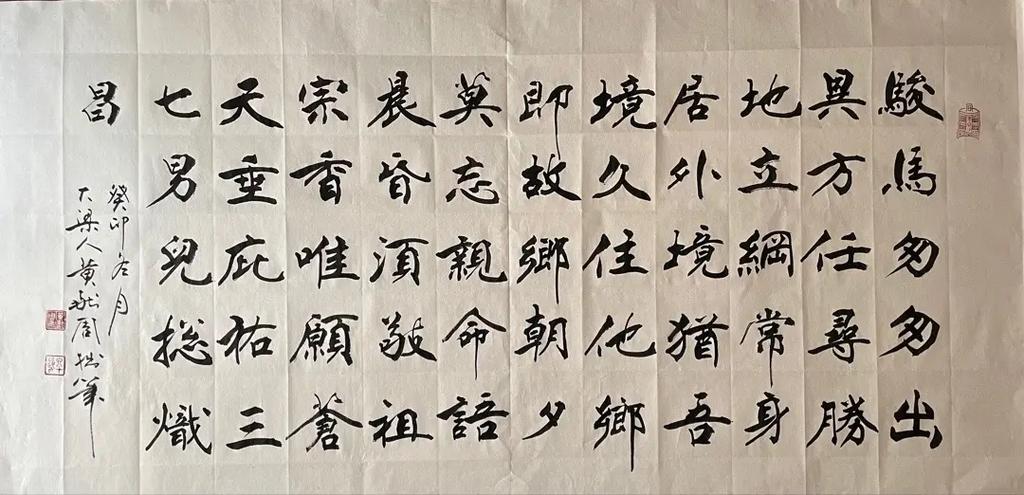 駿馬匆匆出
異方任尋勝
地立綱常身
居外境猶吾
境久住他鄉
即故鄉朝夕
莫忘親命語
晨昏須敬祖
宗香唯願蒼
天垂庇祐三
七男兒総熾
昌
癸卯冬月
大梁人黃周拙筆